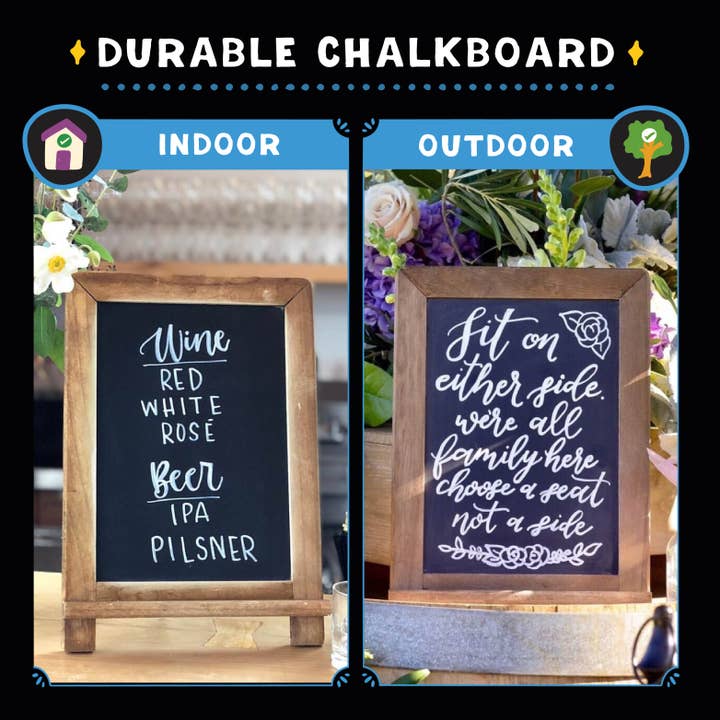 DURABLE CHALKBOARD
INDOOR
Wine
RED
WHITE
ROSÉ
Beer
IPA
PILSNER
OUTDOOR
Sit on
either side.
we're all
family here
choose a seat
not a side